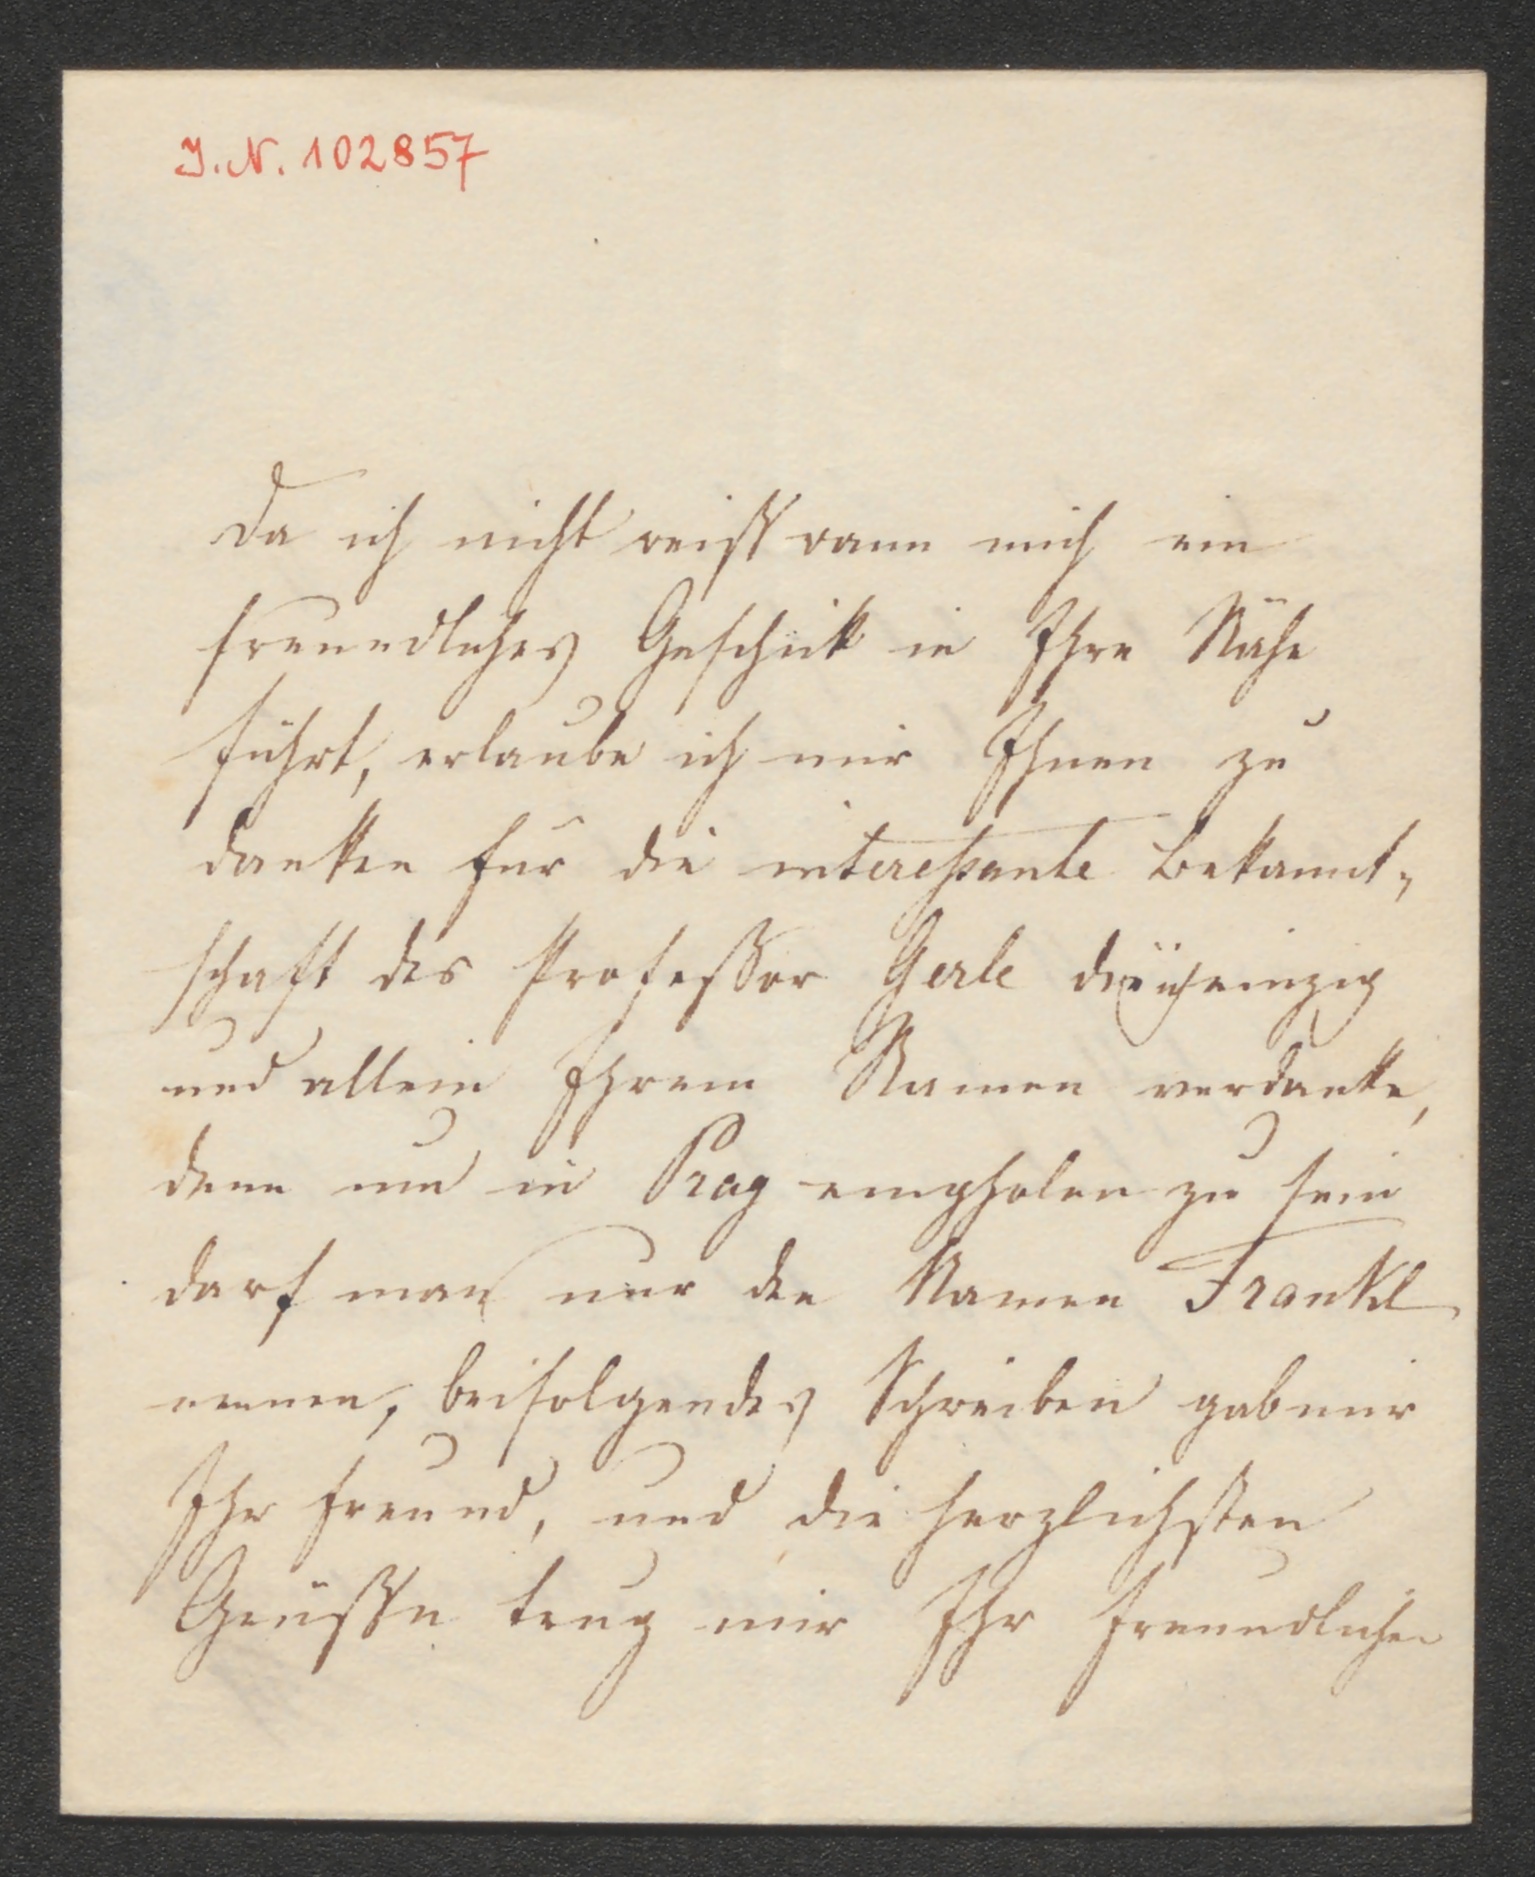 I.N. 102857
Da ich nicht weiß wann mich ein
freundliches Geschick in Ihre Nähe
führt, erlaube ich mir Ihnen zu
danken für die interessante Bekannt-
schaft des Professor Gerle die ich einzig
und allein Ihrem Namen verdanke,
denn um in Prag empholen zu sein
darf man nur den Namen Frankl
nennen, beifolgendes Schreiben gab mir
Ihr Freund, und die herzlichsten
Grüsse trug mir Ihr freundlicher